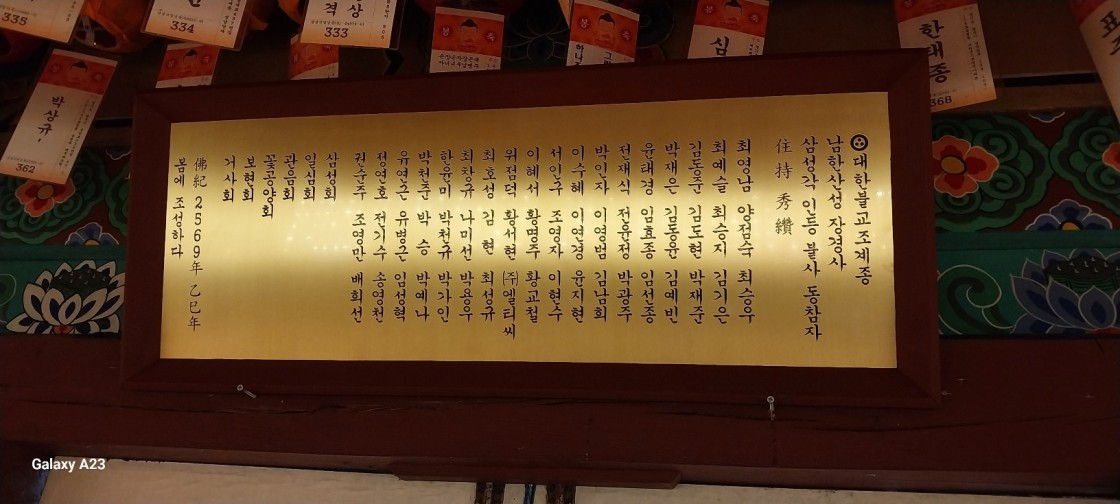 대한불교조계종
남한산성 장경사
삼성각 인등 불사 동참자
住持 秀鑽
최영남 양점숙 최승우
최예슬 최승지 김기은
김동준 김도현 박재준
박재은 김동윤 김예빈
윤태경 임효종 임선종
전재식 전윤정 박광주
박인자 이영범 김남희
이수혜 이연경 윤지현
서인구 조영자 이현수
이혜서 황명주 황교철
위점덕 황서현 ㈜엘티씨
최호성 김현 최성규
최창규 나미선 박용우
한윤미 박천규 박가인
박천준 박승 박예나
유연준 유병은 임성혁
정연호 전기수 송영천
권순주 조영만 배희선
삼성회
일심회
관음회
꽃공양회
보현회
거사회
佛紀 2569年 乙巳年
봄에 조성하다
335
334
333
박상규
362
심
한태종
368
Galaxy A23